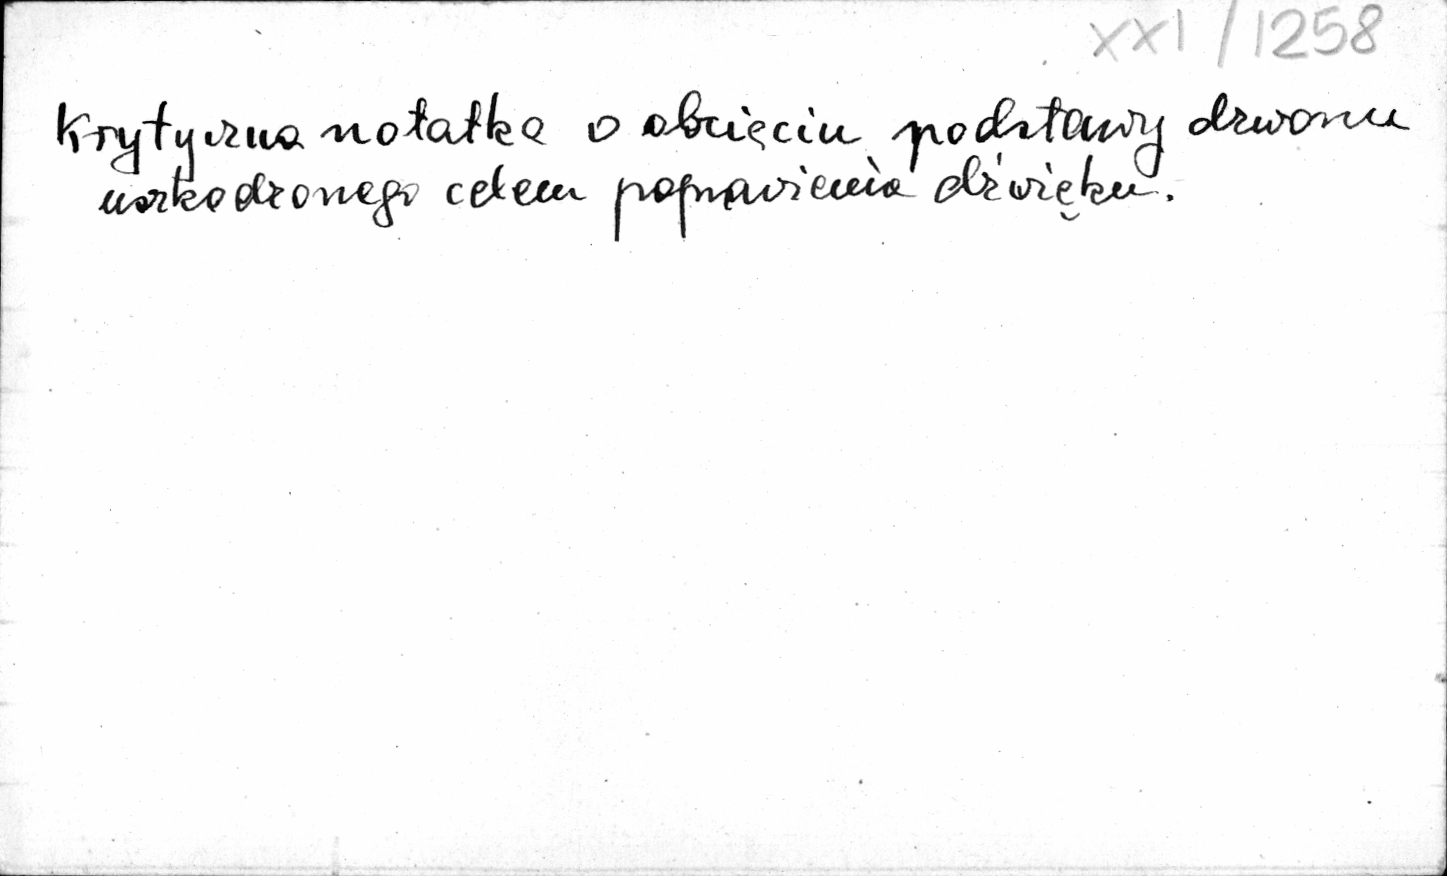 XXI/1258
Krytyczna notatka o obcięciu podstawy dzwonu
uszkodzonego celem poprawienia dźwięku.